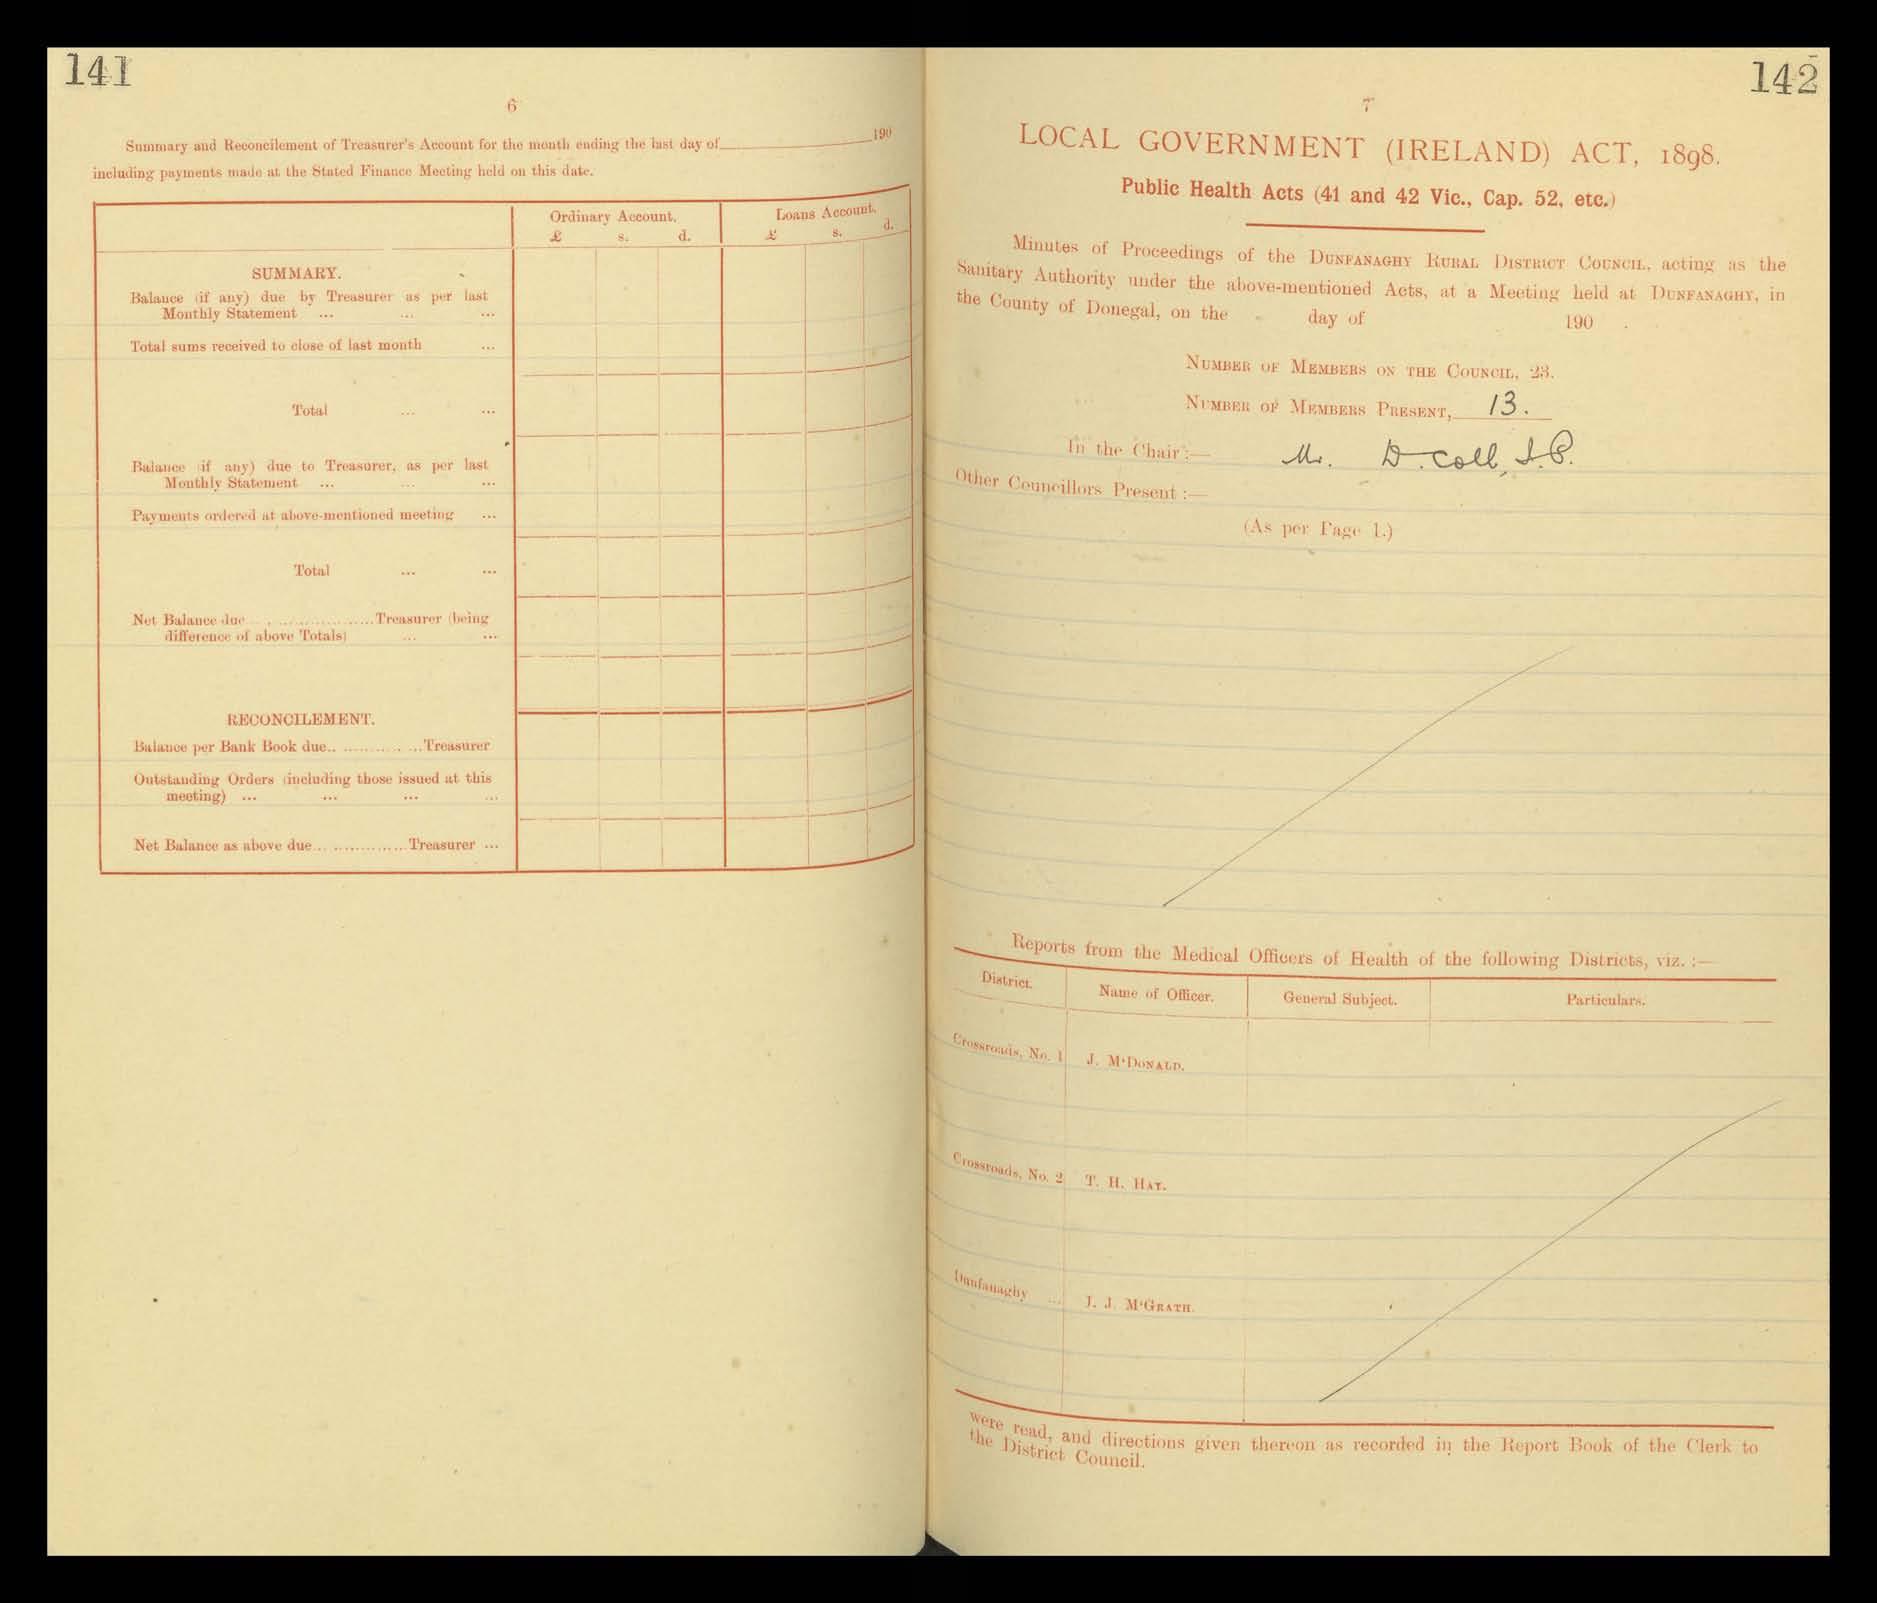 141
6
Summary and Reconcilement of Treasurer's Account for the month ending the last day of 190
including payments made at the Stated Finance Meeting held on this date.
Ordinary Account. Loans Account.
£ s. d. £ s. d.
SUMMARY.
Balance (if any) due by Treasurer as per last
Monthly Statement ... ... ...
Total sums received to close of last month ...
Total ... ...
Balance (if any) due to Treasurer, as per last
Monthly Statement ... ... ...
Payments ordered at above-mentioned meeting ...
Total ... ...
Net Balance due ..................... Treasurer (being
difference of above Totals) ... ...
RECONCILEMENT.
Balance per Bank Book due.. .............. Treasurer
Outstanding Orders (including those issued at this
meeting) ... ... ... ...
Net Balance as above due... .............. Treasurer ...
142
7
LOCAL GOVERNMENT (IRELAND) ACT, 1898.
Public Health Acts (41 and 42 Vic., Cap. 52, etc.)
Minutes of Proceedings of the DUNFANAGHY RURAL DISTRICT COUNCIL, acting as the
Sanitary Authority under the above-mentioned Acts, at a Meeting held at DUNFANAGHY, in
the County of Donegal, on the day of 190 .
NUMBER OF MEMBERS ON THE COUNCIL, 23.
NUMBER OF MEMBERS PRESENT, 13.
In the Chair :— Mr. D. Coll, J.P.
Other Councillors Present :—
(As per Page 1.)
Reports from the Medical Officers of Health of the following Districts, viz. :—
District. Name of Officer. General Subject. Particulars.
Crossroads, No. 1 J. M'DONALD.
Crossroads, No. 2 T. H. HAY.
Dunfanaghy ... J. J. M'GRATH.
were read, and directions given thereon as recorded in the Report Book of the Clerk to
the District Council.